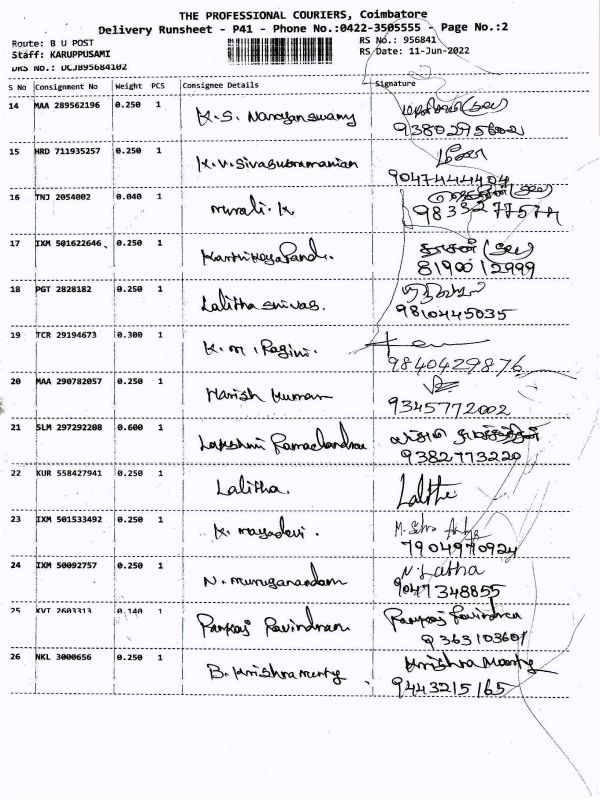 THE PROFESSIONAL COURIERS, Coimbatore
Delivery Runsheet - P41 - Phone No.:0422-3505555 - Page No.:2
Route: B U POST RS No.: 956841
Staff: KARUPPUSAMI RS Date: 11-Jun-2022
DRS No.: DCJB95684102
S No Consignment No Weight PCS Consignee Details Signature
14 MAA 289562196 0.250 1 K.S. Narayanswamy
15 HRD 711935257 0.250 1 K.V. Sivasubramanian
9047444404
16 TNJ 2054002 0.040 1 Murali. K
98332 77574
17 IXM 501622646 0.250 1
81900 12999
18 PGT 2828182 0.250 1 Lalitha srivas.
9810445035
19 TCR 29194673 0.300 1 K.M. Ragini.
9840429876
20 MAA 290782057 0.250 1 Harish Kumar
9345772002
21 SLM 297292208 0.600 1 Lakshmi Ramachandran
9382773220
22 KUR 558427941 0.250 1 Lalitha. Lalitha
23 IXM 501533492 0.250 1 K. Mayadevi.
7904970924
24 IXM 50092757 0.250 1 N. Muruganandam N. Latha
9047348855
25 KVT 2603313 0.140 1 Pankaj Ravindran Pankaj Ravindran
9363103601
26 NKL 3000656 0.250 1 B. Krishna Murty Krishna Moorty
9443215165